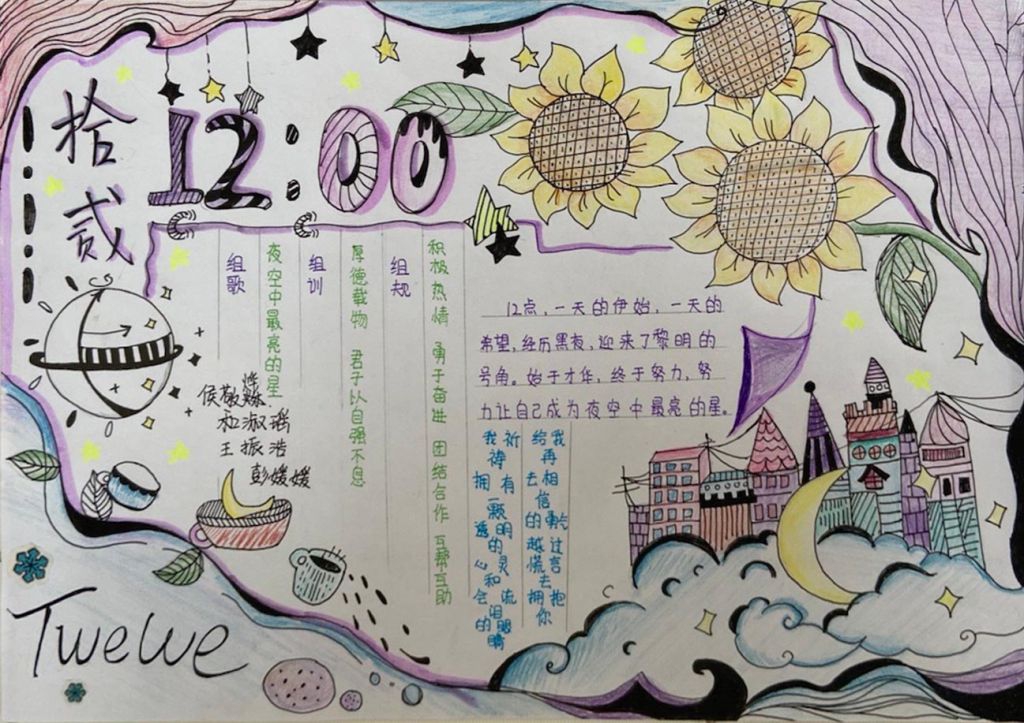 拾贰
12:00
组歌
夜空中最亮的星
组训
厚德载物 君子以自强不息
组规
积极热情 勇于奋进 团结合作 互帮互助
12点,一天的伊始,一天的
希望,经历黑夜,迎来了黎明的
号角。始于才华,终于努力,努
力让自己成为夜空中最亮的星。
我祈祷拥有一颗透明的灵
和会流泪的眼睛
给我再去相信的勇气
越过谎言去拥抱你
和淑瑶
王振浩
彭媛媛
Twelve